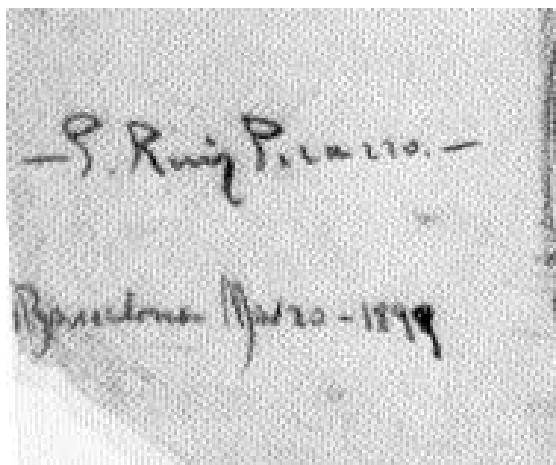 — P. Ruiz Picazzo. —
Barcelona Marzo - 1899